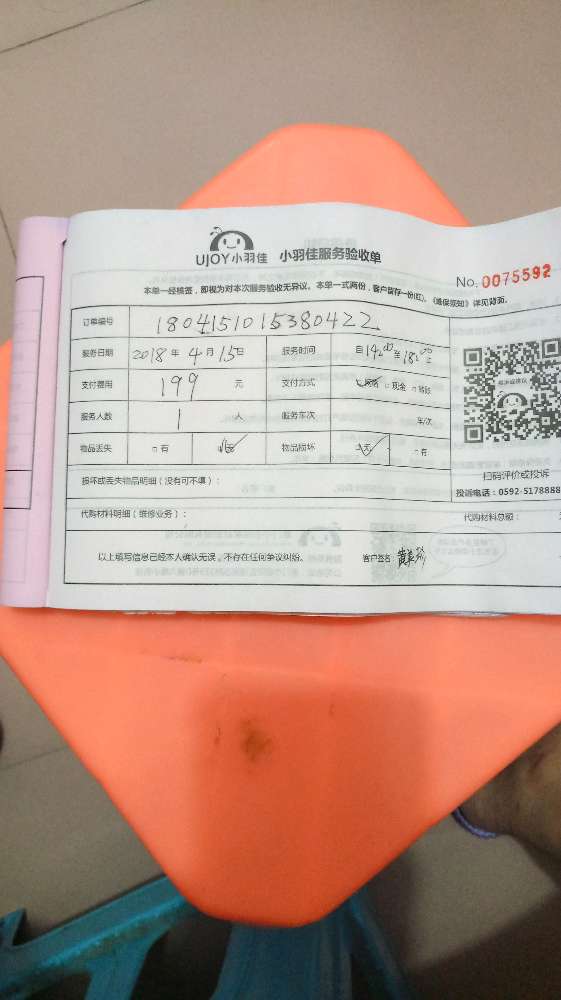 UJOY小羽佳 小羽佳服务验收单
No. 0075592
本单一经核签，即视为对本次服务验收无异议。本单一式两份，客户留存一份(红)。《维保须知》详见背面。
订单编号 1804151015380422
服务日期 2018年4月15日 服务时间 自14:00至18:00
支付费用 199 元 支付方式 网络 □现金 □转账
服务人数 1 人 服务车次 车/次
物品丢失 □有 无 物品损坏 无 □有
扫码评价或投诉
投诉电话：0592-5178888
损坏或丢失物品明细（没有可不填）：
代购材料明细（维修业务）： 代购材料总额：
以上填写信息已经本人确认无误，不存在任何争议纠纷。 客户签名